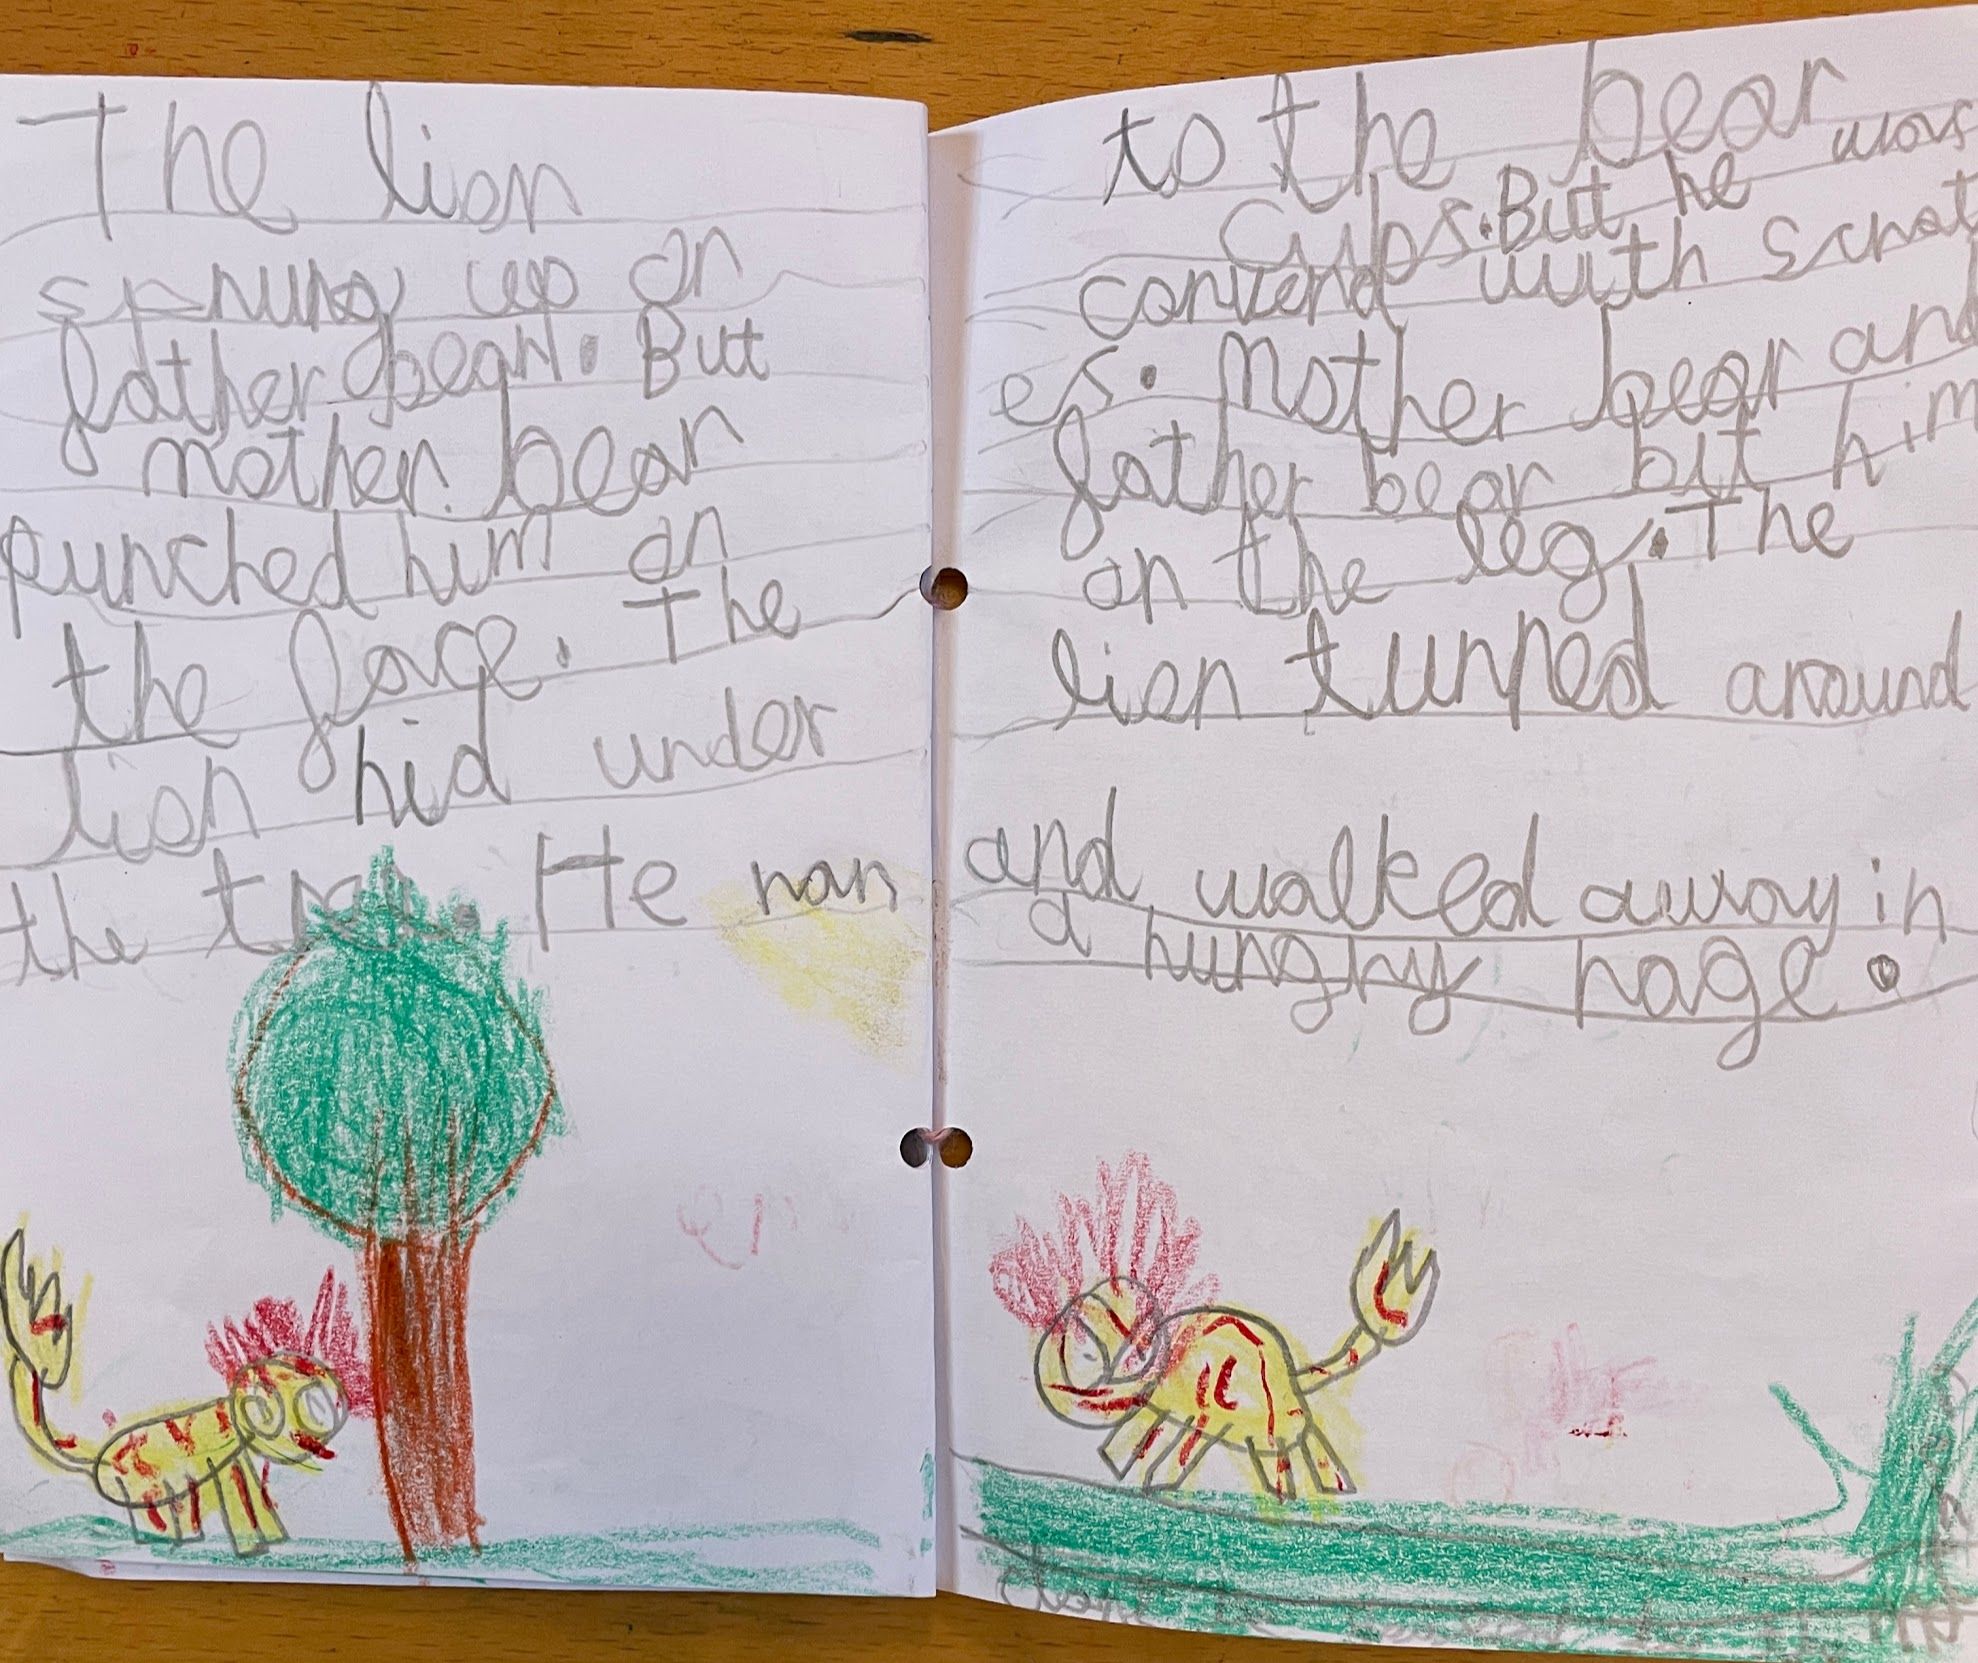 The lion
sprung up on
father bear. But
mother bear
punched him on
the face. The
lion hid under
the tree. He ran
to the bear
cubs. But he was
converd with scrat
es. Mother bear and
father bear bit him
on the leg. The
lion turned around
and walked away in
a hungry rage.